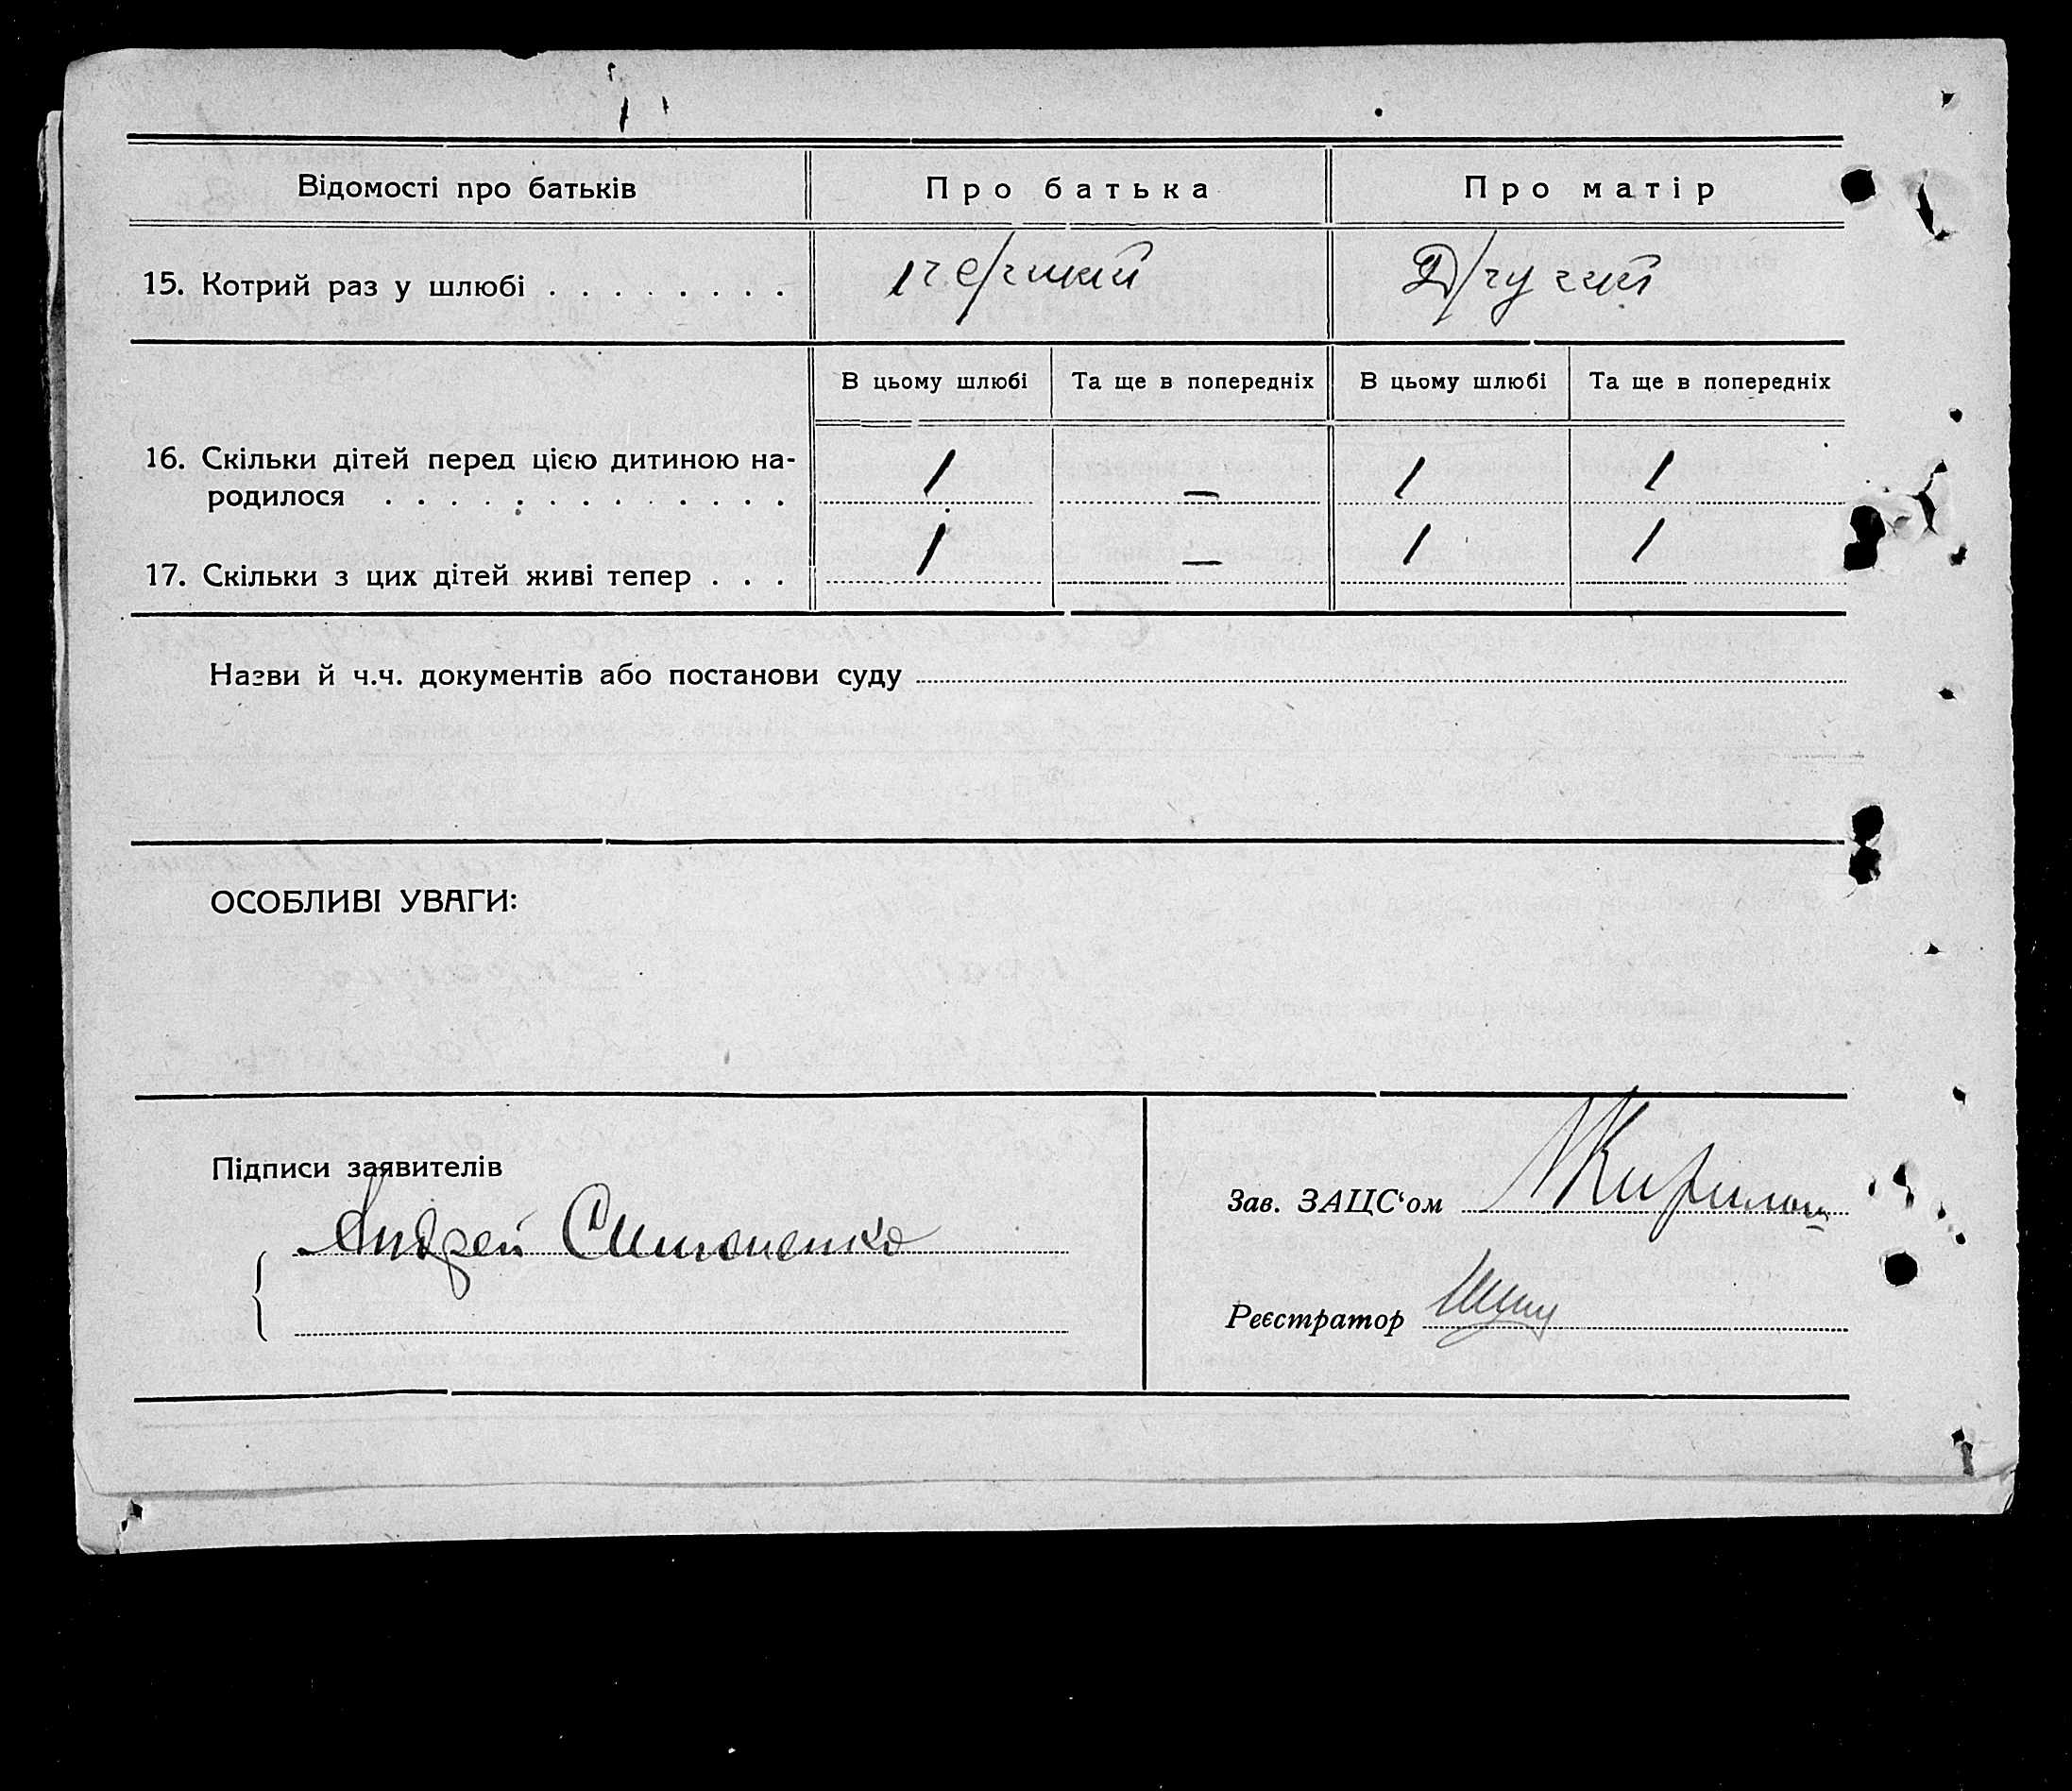 Відомості про батьків
Про батька
Про матір
15. Котрий раз у шлюбі . . . . . . . .
перший
Другий
В цьому шлюбі
Та ще в попередніх
В цьому шлюбі
Та ще в попередніх
16. Скільки дітей перед цією дитиною на-
родилося . . . . . . . . . . . . .
1
—
1
1
17. Скільки з цих дітей живі тепер . . .
1
—
1
1
Назви й ч.ч. документів або постанови суду
ОСОБЛИВІ УВАГИ:
Підписи заявителів
Андрей Симоненко
Зав. ЗАЦС‘ом
Реєстратор